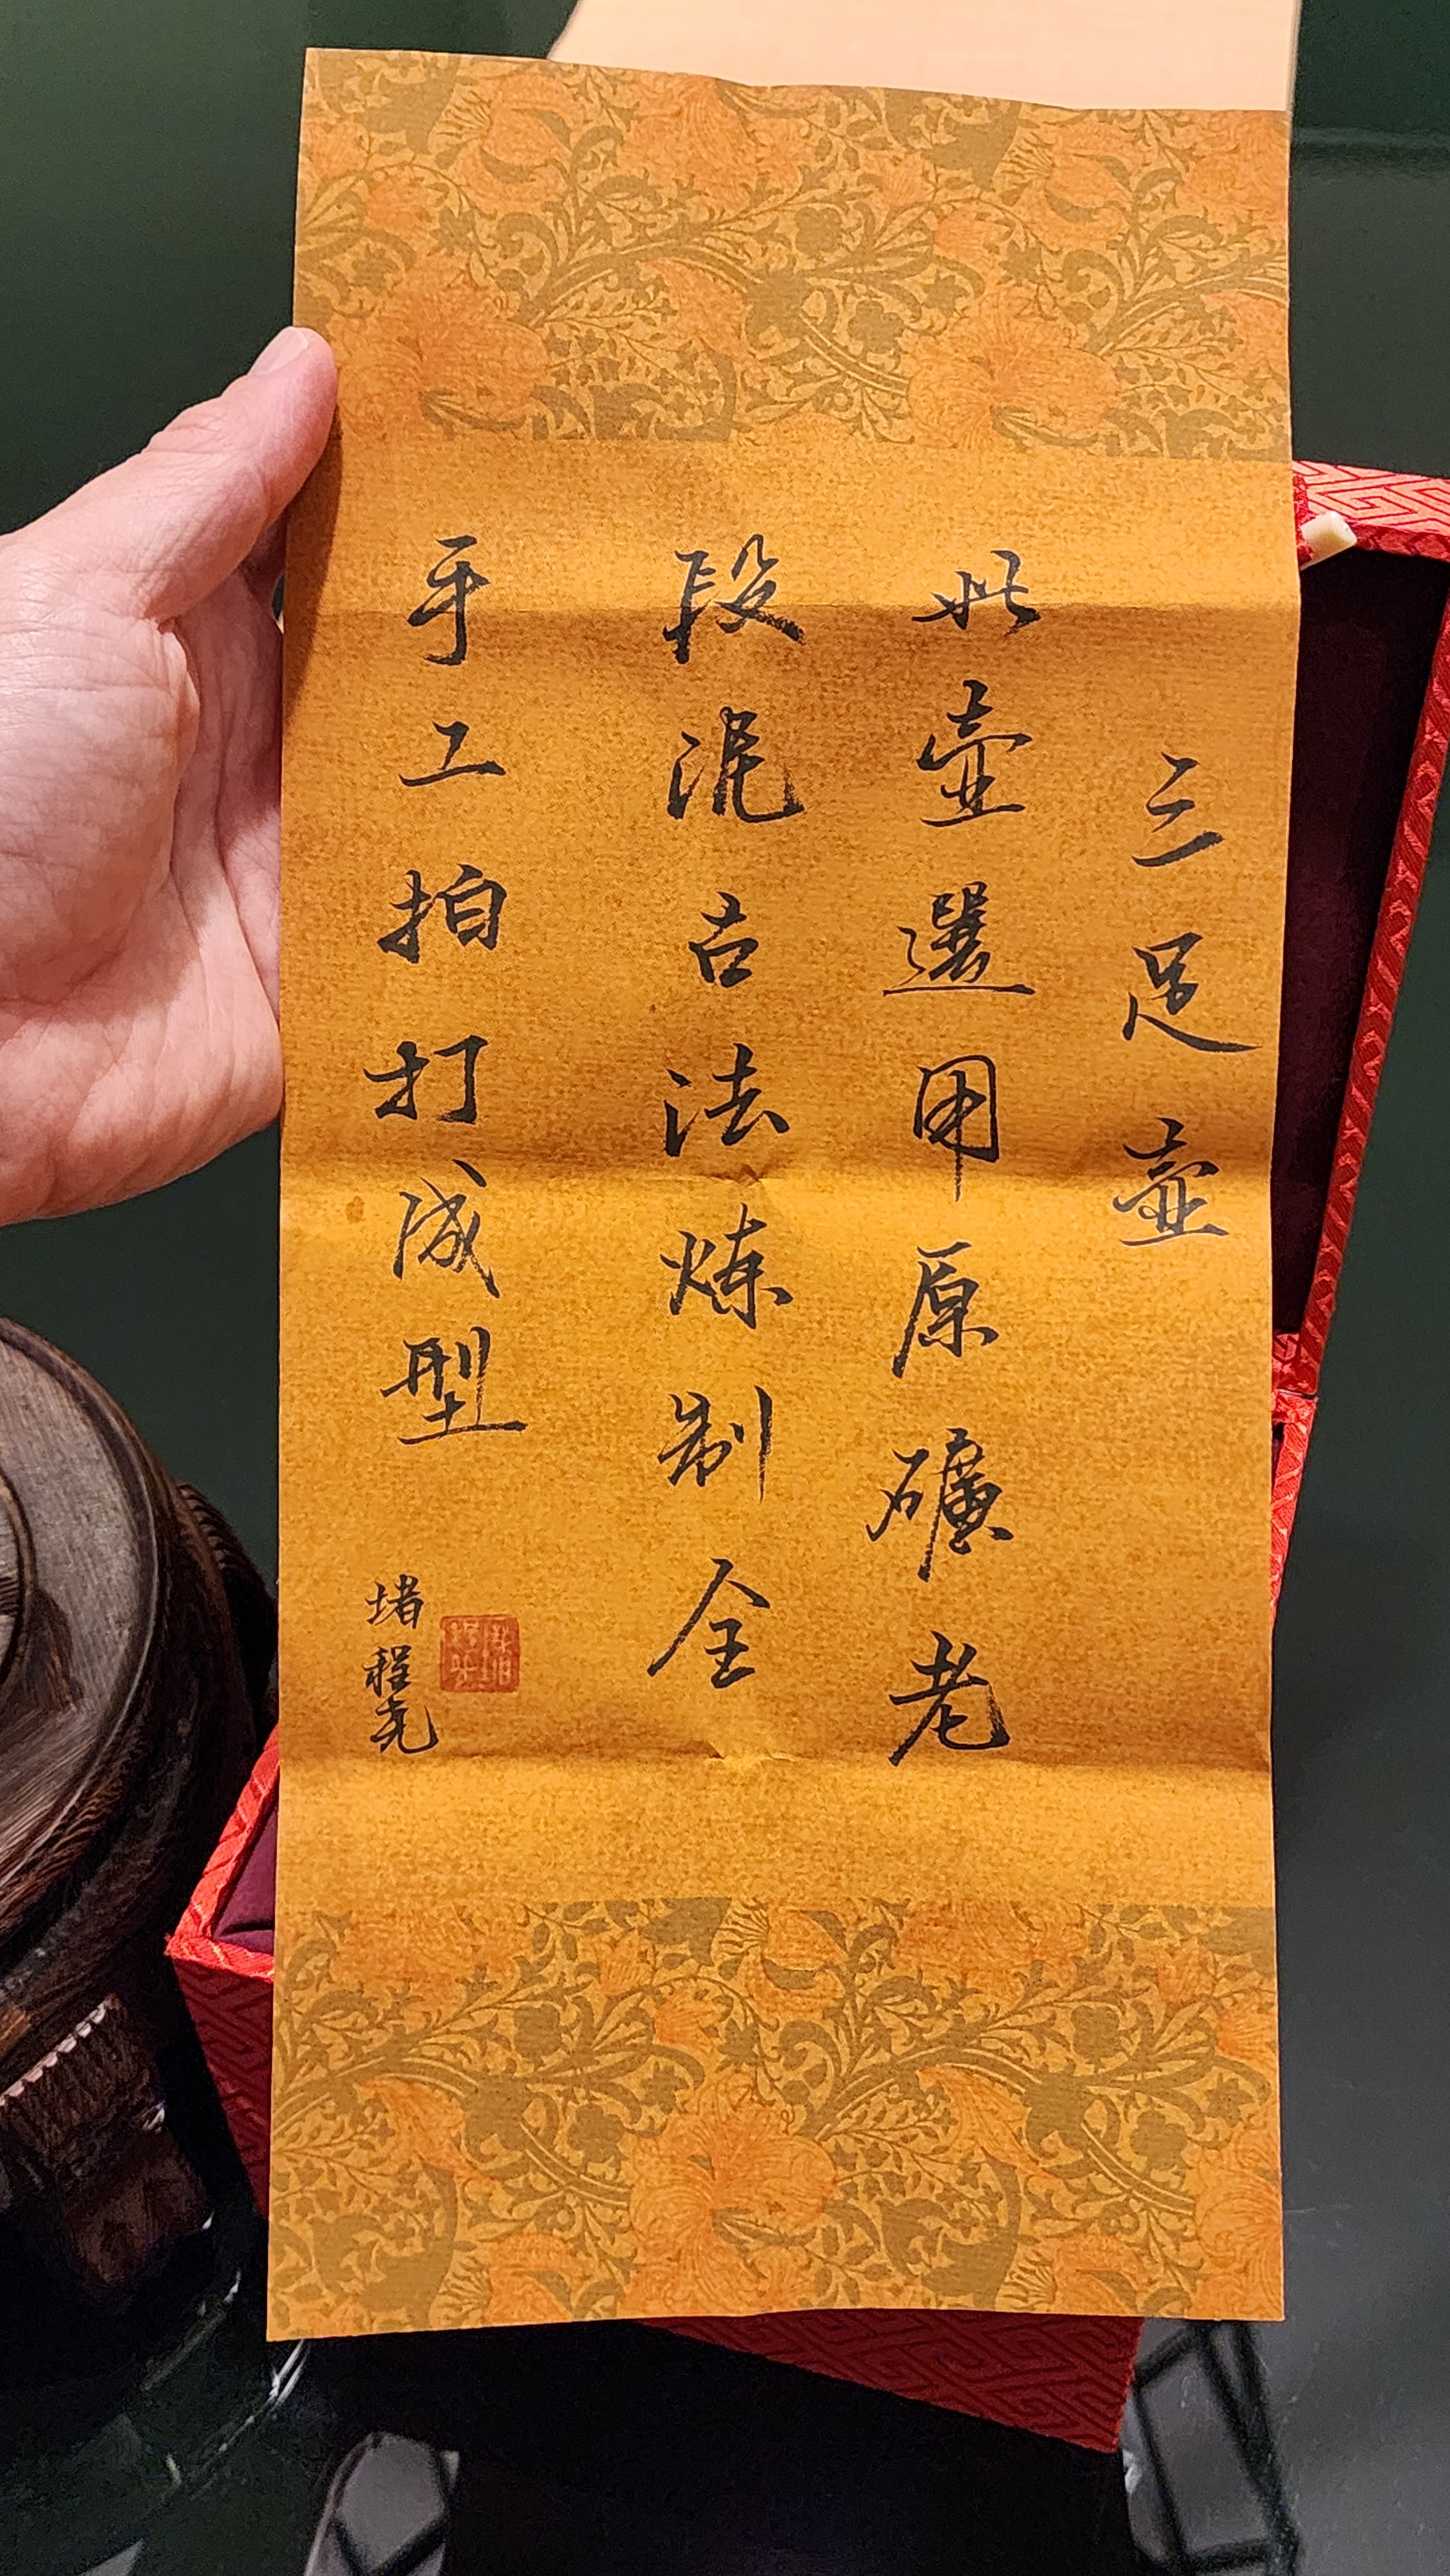 三足壶
此壶選用原礦老
段泥古法炼制全
手工拍打成型
堵程尧